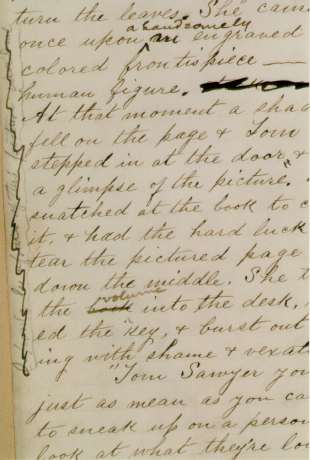 turn the leaves. She cam
a handsomely
once upon an engraved
colored frontispiece —
human figure.
At that moment a shad
fell on the page & Tom
stepped in at the door, &
a glimpse of the picture.
snatched at the book to c
it, & had the hard luck
tear the pictured page
down the middle. She t
volume
the book into the desk,
ed the key, & burst out
ing with shame & vexat
"Tom Sawyer you
just as mean as you ca
to sneak up on a person
look at what they're loo